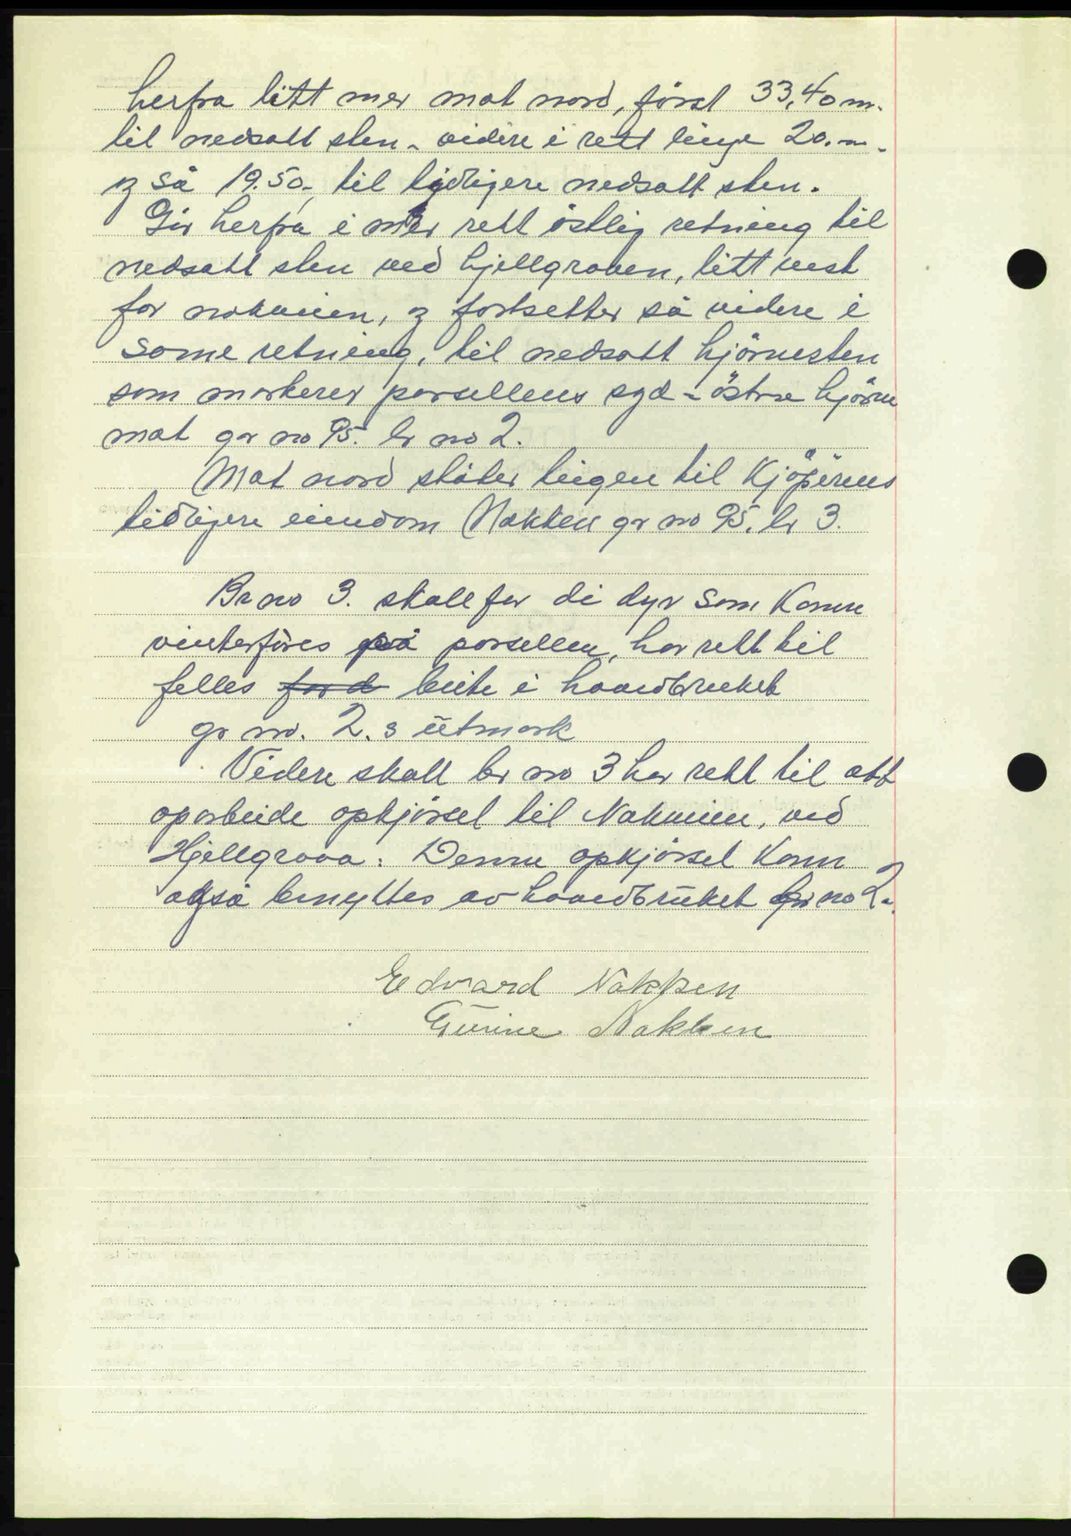 herfra litt mer mot nord, først 33,40 m.
til nedsatt sten - videre i rett linje 20.m.
og så 19.50, til tidligere nedsatt sten.
Går herfra i mer rett östlig retning til
nedsatt sten ved hjellgraven, litt vest
for , og fortsetter så videre i
same retning, til nedsatt hjörnesten
som markerer parsellens syd-östre hjörne
mot gr no 95. br no 2.
Mot nord stöter lingen til Kjöperens
tidligere eiendom Nakken gr no 95. br 3.
Br no 3. skall for de dyr som kann
vinterföres på parsellen, har rett til
felles for d beite i hovedbruket
gr no. 2.s ütmark
Videre skall br no 3 har rett til att
oparbeide opkjörsel til , ved
Hjellgrova. Denne opkjörsel kann
også benyttes av hovedbrüket br no 2.
Edvard Nakken
Gürine Nakken